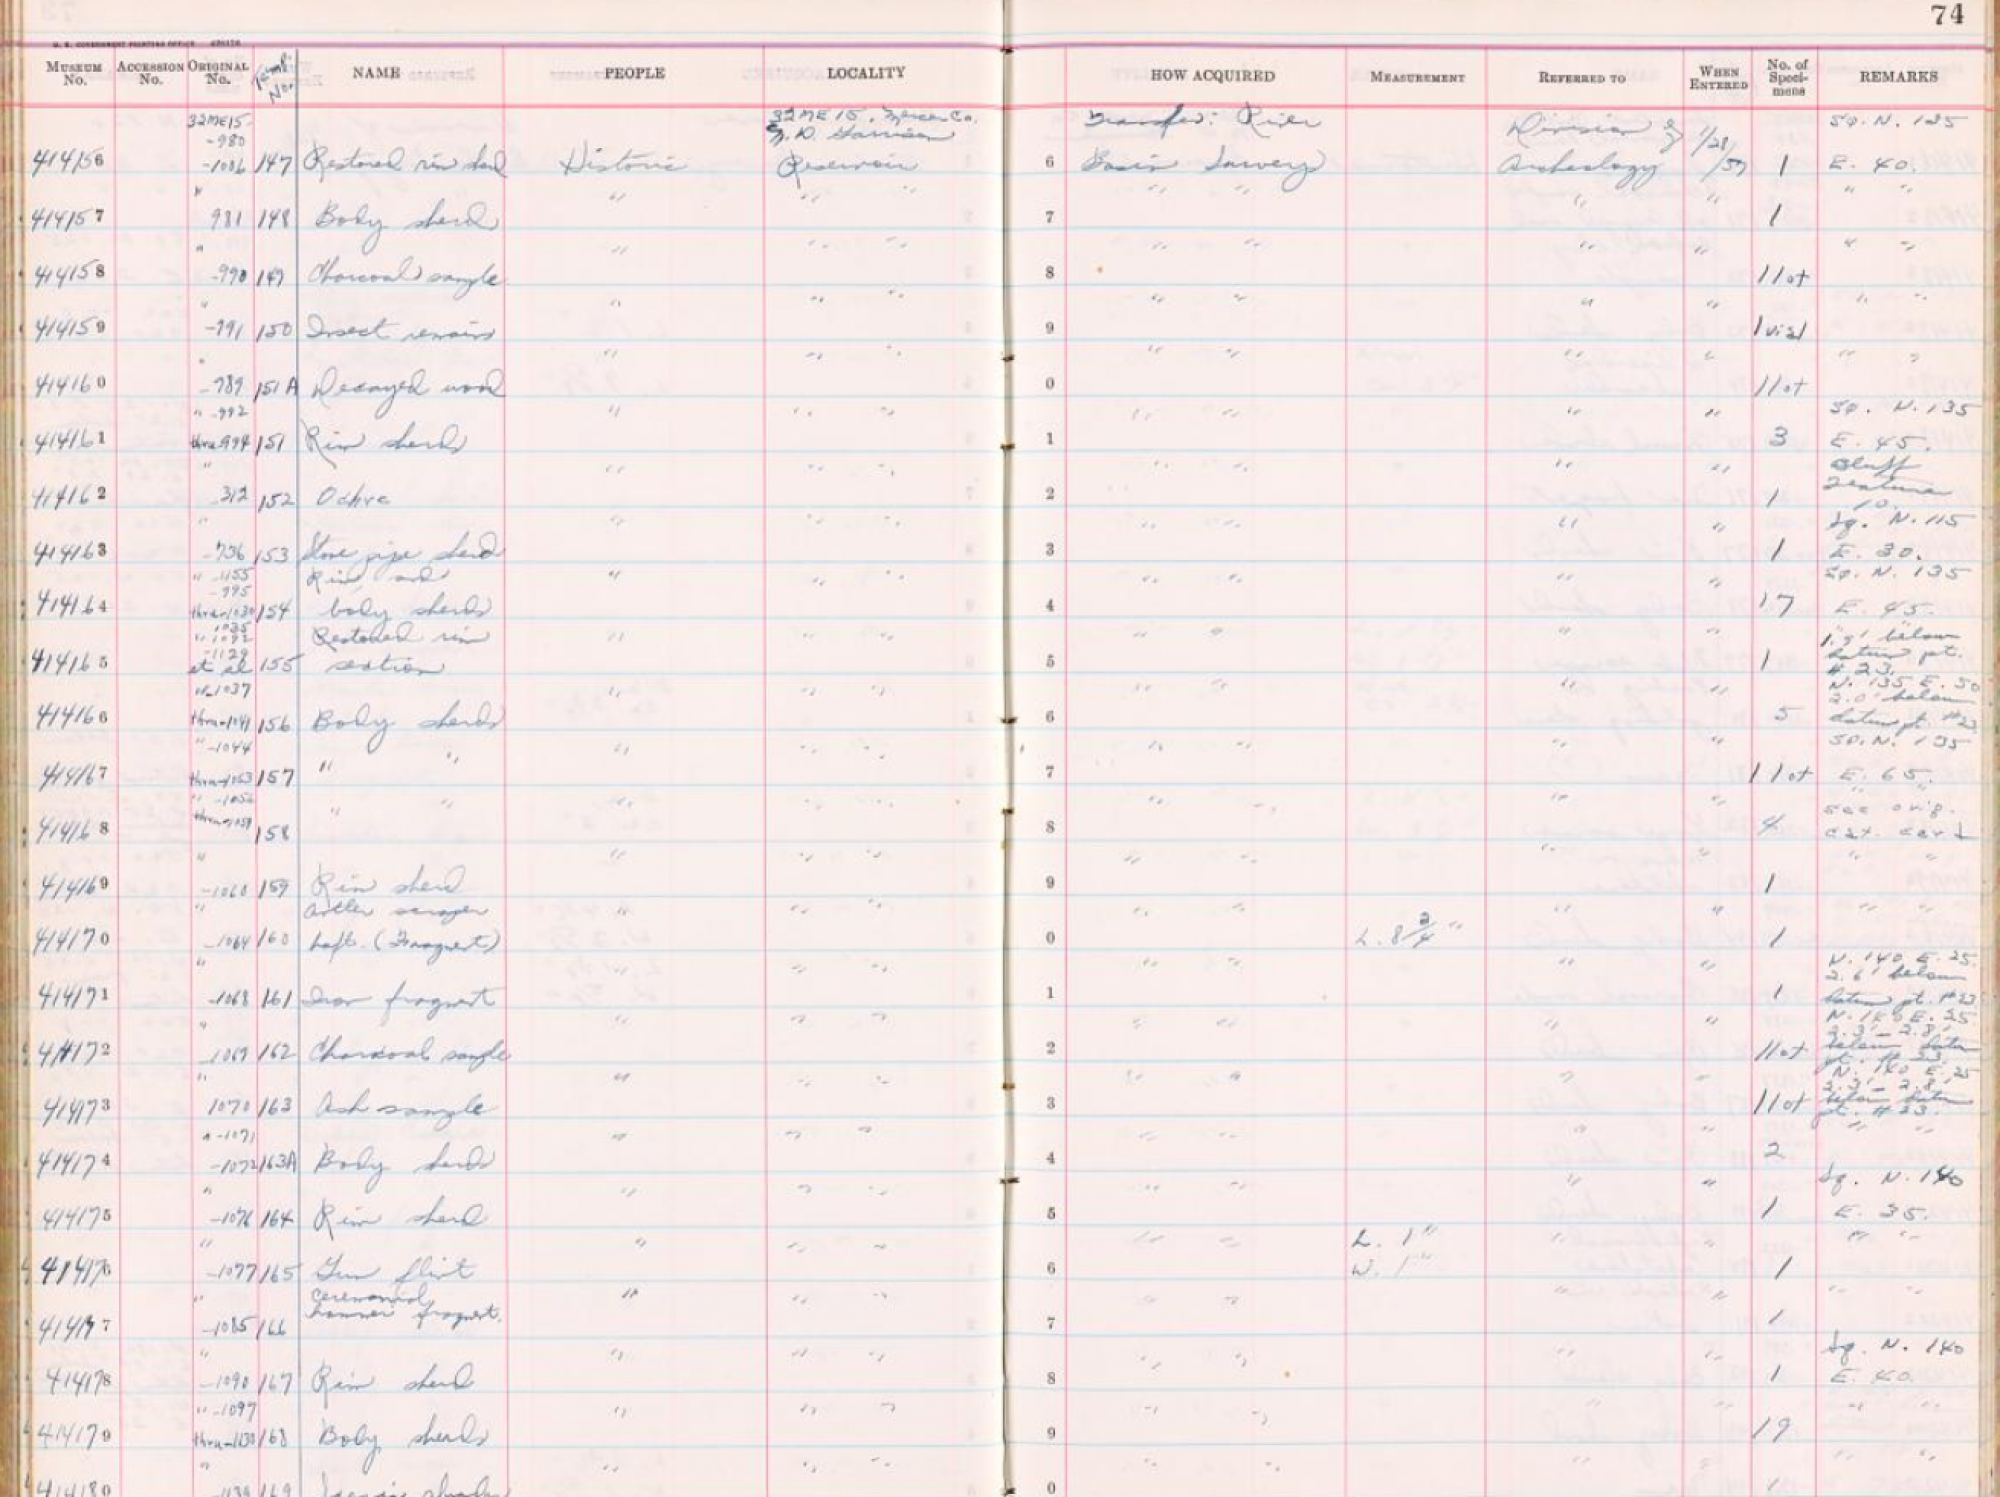 74
U. S. GOVERNMENT PRINTING OFFICE
MUSEUM No. ACCESSION No. ORIGINAL No. NAME PEOPLE LOCALITY HOW ACQUIRED MEASUREMENT REFERRED TO WHEN ENTERED No. of Speci-mens REMARKS
32ME15- 32ME15, Mercer Co. Transfer: River Division of 1/28 Sq. N. 135
-980 N. D. Garrison
414156 -1086 147 Restored rim sherd Historic Reservoir 6 Basin Surveys Archeology /57 1 E. 40.
" " " " " " " " " " "
414157 981 148 Body sherd 7 1
" " " " " " " " " "
414158 -990 149 Charcoal sample 8 1 lot
" " " " " " " " " "
414159 -991 150 Insect remains 9 1 vial
" " " " " " " " " "
414160 -989 151A Decayed wood 0 1 lot
" -992 " " " " " " " Sq. N. 135
414161 thru -994 151 Rim sherds 1 3 E. 45.
" " " " " " " " Bluff
Feature
414162 312 152 Ochre 2 1 10.
" " " " " " " " Sq. N. 115
414163 -736 153 Stone pipe sherd 3 1 E. 30.
" -1155 Rim and " " " " " " " Sq. N. 135
-995
414164 thru -1030 154 body sherds 4 17 E. 45.
1035
" -1092 Restored rim " " " " " " " below
-1129 datum pt.
414165 et al 155 section 5 1 # 23.
" -1037 " " " " " " " N. 135 E. 50
2.0' below
414166 thru -1041 156 Body sherds 6 5 datum pt. #23
" -1044 " " " " " " " Sq. N. 135
414167 thru -1053 157 " " 7 1 lot E. 65.
" " " " " " " " " " see orig.
414168 158 8 4 cat. card
" " " " " " " " " "
414169 -1060 159 Rim sherd 9 1
" Antler scraper " " " " " " " " "
414170 -1064 160 haft. (Fragment) 0 L. 8 3/4" 1
" " " " " " " " N. 140 E. 25
2.6' below
414171 -1068 161 Iron fragment 1 1 datum pt. #23
" " " " " " " " N. 140 E. 25
2.3' - 2.8'
414172 -1069 162 Charcoal sample 2 1 lot below datum
pt. # 23.
" " " " " " " N. 140 E. 25
2.3' - 2.8'
414173 1070 163 Ash sample 3 1 lot below datum
pt. # 23.
" -1071 " " " " " " " "
414174 -1072 163A Body sherds 4 2
" " " " " " " " Sq. N. 140
414175 -1076 164 Rim sherd 5 1 E. 35.
" " " " " " L. 1" " " " "
414176 -1077 165 Gun flint 6 W. 1" 1
" Ceremonial " " " " " " " " "
hammer fragment.
414177 -1085 166 7 1
" " " " " " " " Sq. N. 140
414178 -1090 167 Rim sherd 8 1 E. 40.
" -1097 " " " " " " " " "
414179 thru -1130 168 Body sherds 9 19
" " " " " " " " "
414180 -1139 169 0